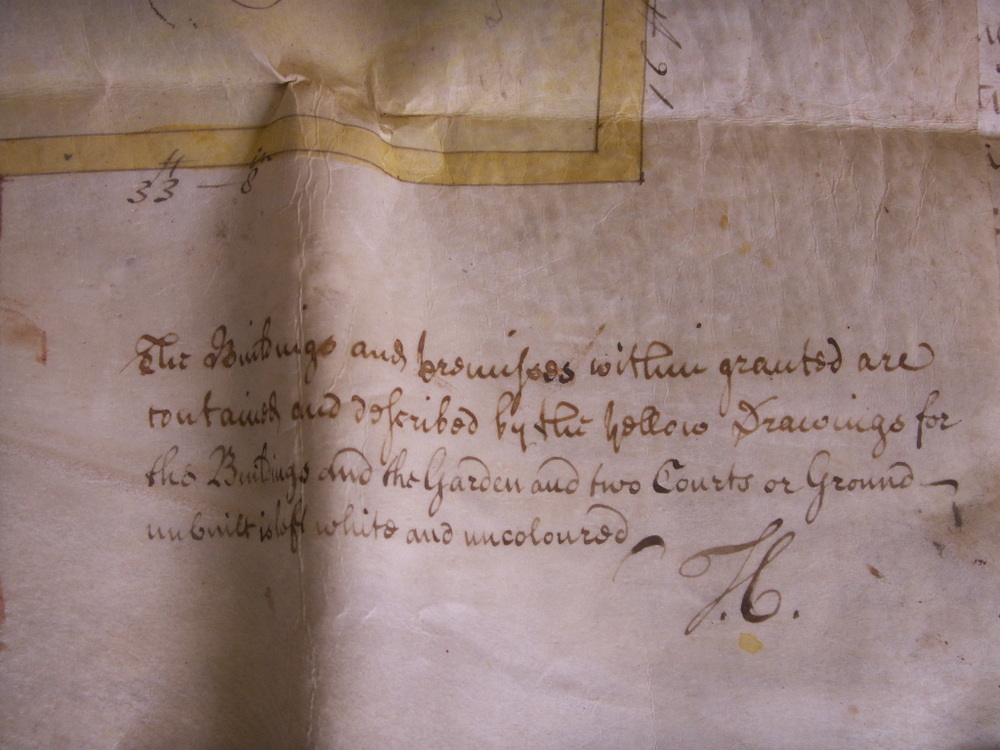 33 ft — 8 in
The Buildings and premisses within granted are
contained and described by the yellow Drawings for
the Buildings and the Garden and two Courts or Ground
unbuilt is left white and uncoloured
H.